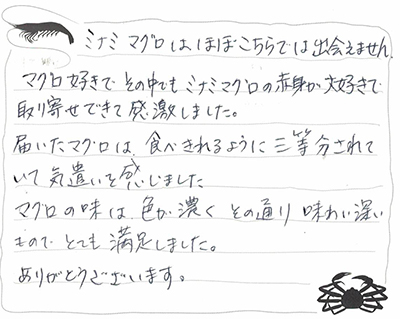 ミナミマグロは、ほぼこちらでは出会えません。
マグロ好きでその中でもミナミマグロの赤身が大好きで
取り寄せできて感激しました。
届いたマグロは、食べきれるように三等分されて
いて気遣いを感じました
マグロの味は、色が濃く その通り 味わい深い
もので とても 満足しました。
ありがとうございます。